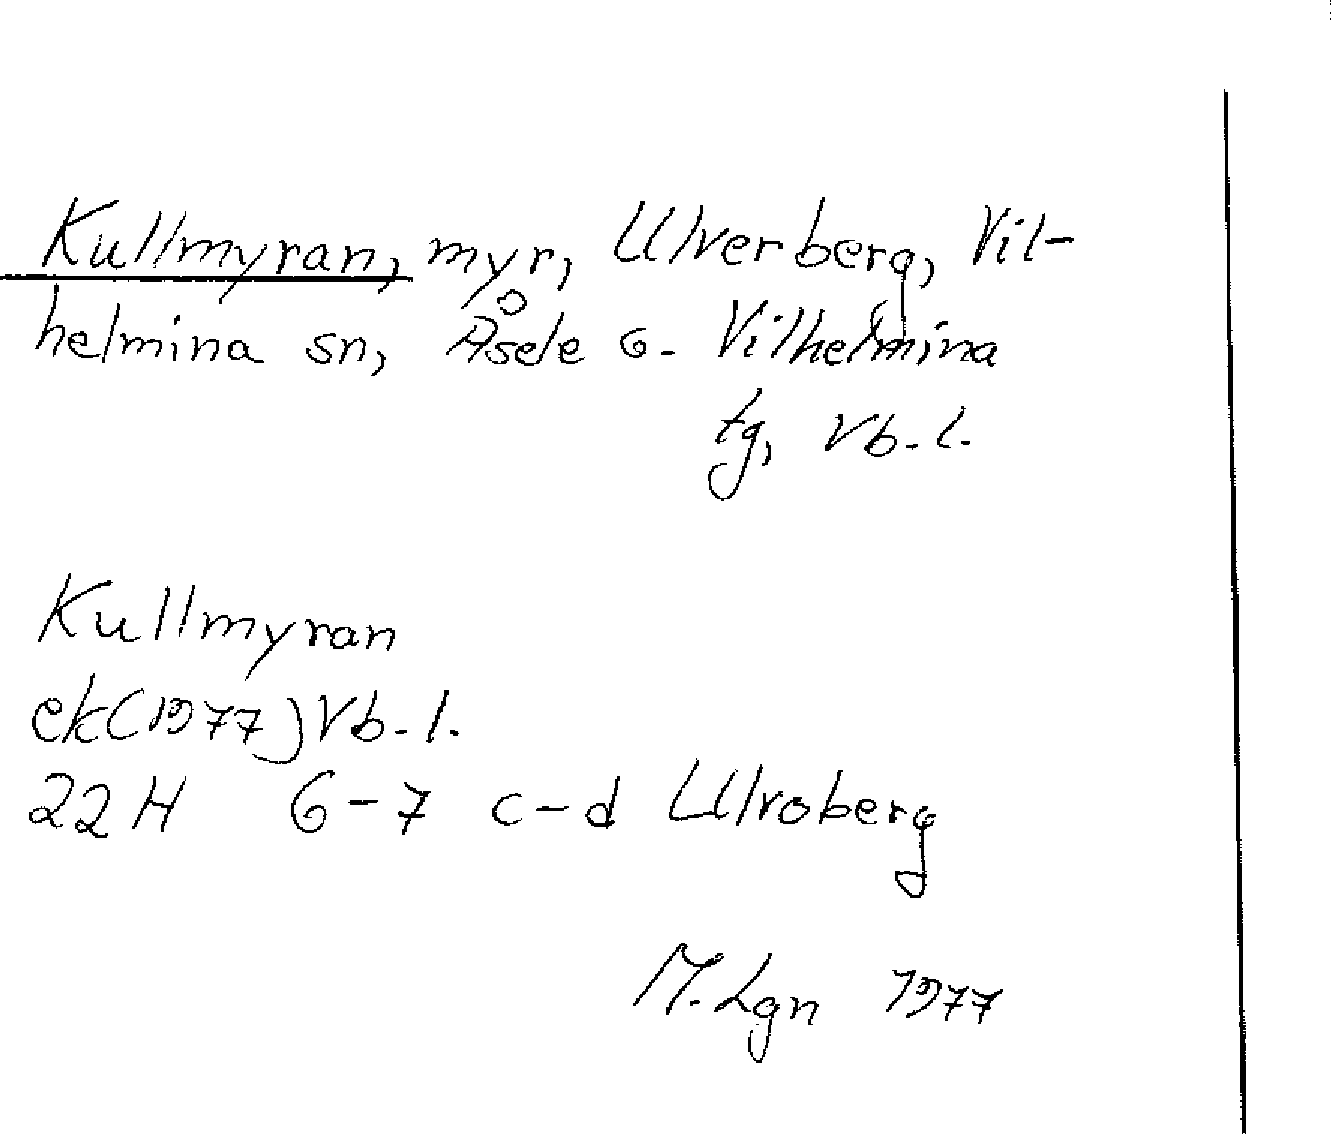 Kullmyran, myr, Ulverberg, Vil-
helmina sn, Åsele o. Vilhelmina
tg, Vb. l.
Kullmyran
ek(1977) Vb. l.
22 H 6-7 c-d Ulvoberg
M. Lgn 1977